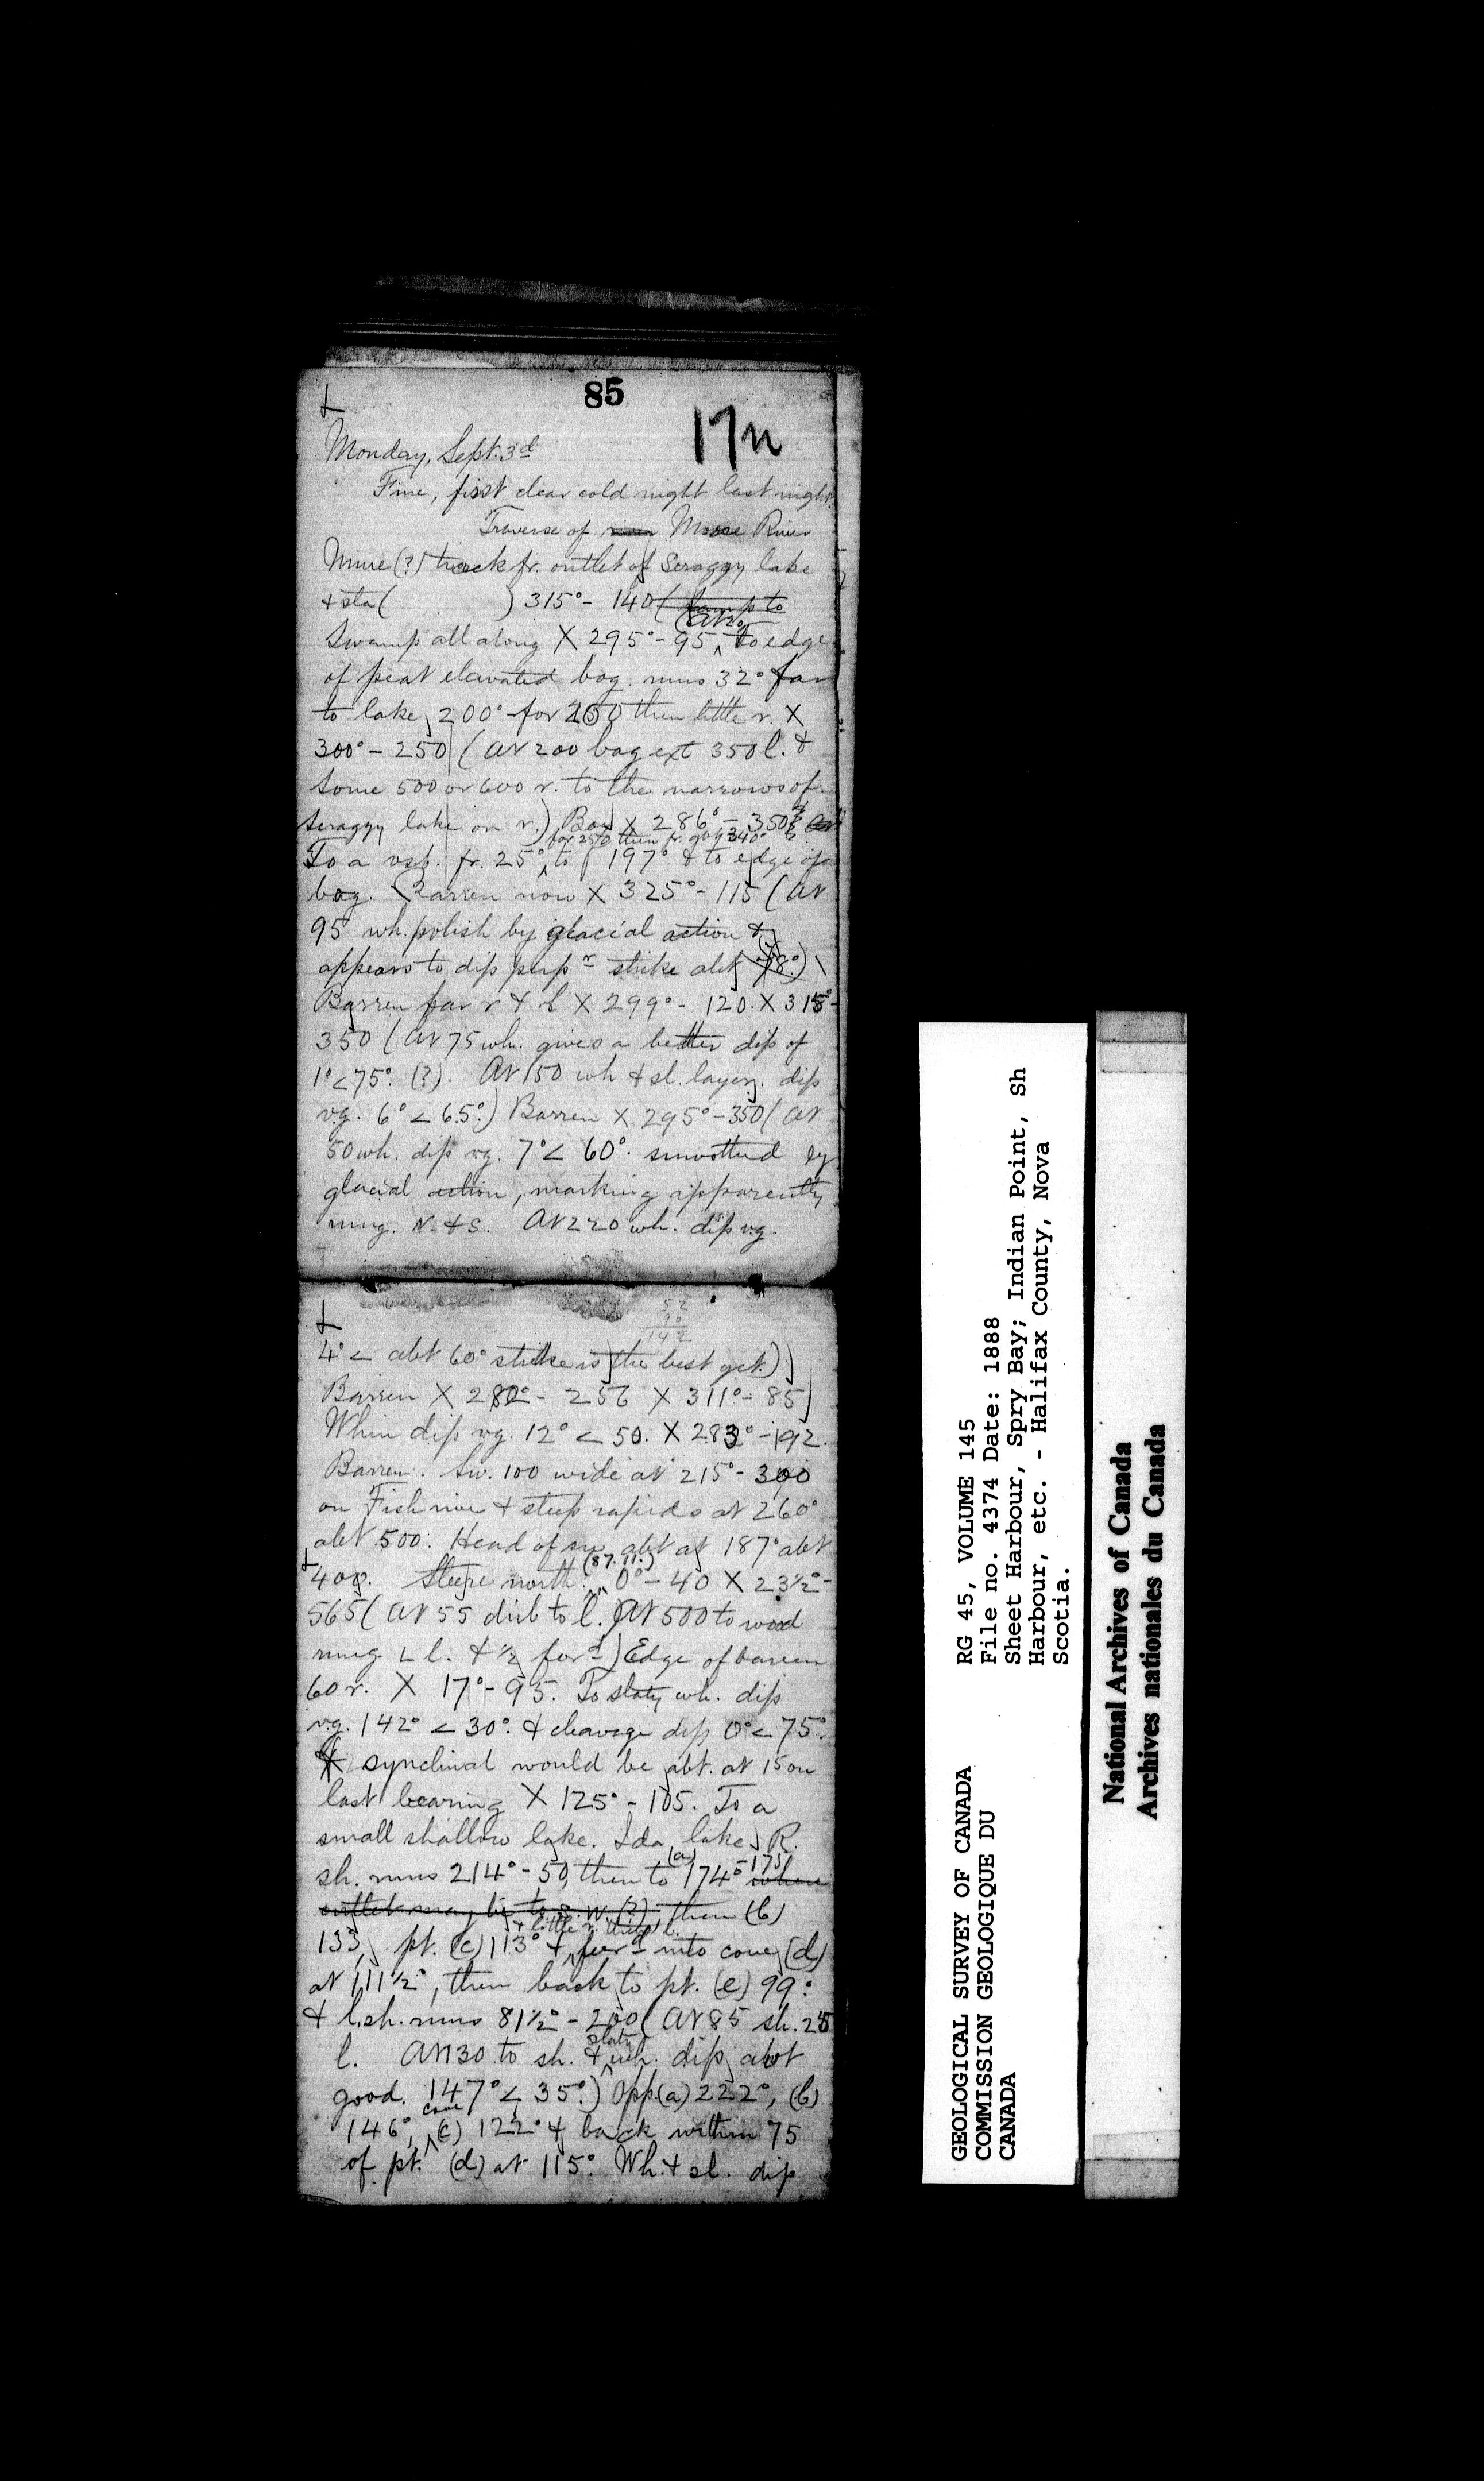 85
17n
Monday, Sept. 3d
Fine, first clear cold night last night.
Traverse of river Moose River
Mure (?) track fr. outlet of Scraggy lake
& sta ( ) 315° - 140 (
Swamp all along X 295° - 95, to edge
of peat elevated bog. runs 32° far
to lake, 200° for 250 then little r. X
300° - 250 (at 200 bog ext 350 l. &
some 500 or 600 r. to the narrows of
Scraggy lake on r.) Bog X 286° - 350
To a vsb. fr. 25°, to 197° & to edge of
bog. Barren now X 325° - 115 (at
95 wh. polish by glacial action &
appears to dip perp r strike abt 78°.)
Barren far r & l X 299° - 120. X 315° -
350 (at 75 wh. gives a better dip of
1° < 75°. (?). At 150 wh & sl. layers. dip
vg. 6° < 65°.) Barren X 295° - 350 (at
50 wh. dip vg. 7° < 60°. smoothed by
glacial action, marking apparently
rung. N. & S. At 220 wh. dip vg.
52
90
142
4° < abt 60° strike is the best get.)
Barren X 282° - 256 X 311° - 85
Whin dip vg. 12° < 50. X 283° - 192.
Barren. Sw. 100 wide at 215° - 300
on Fish river & steep rapids at 260°
abt 500. Head of sw. abt at 187° abt
400. Steere north. (87.11.) 0° - 40 X 23½° -
565 (at 55 dirb to l. At 500 to wood
rung ∟ l. & ½ for d) Edge of barren
60 r. X 17° - 95. To slaty wh. dip
vg. 142° < 30°. & cleavage dip 0° < 75°.
synclinal would be abt. at 15 on
last bearing X 125° - 105. To a
small shallow lake. Ida lake R.
sh. runs 214° - 50, then to (a) 174° - 175 where
outlet may be to S. W. (?) then (b)
& little r. then l.
133, pt. (c) 113° & for d into cove (d)
at 111½°, then back to pt. (e) 99°.
& l. sh. runs 81½° - 200 (at 85 sh. 25
l. At 130 to sh. & slaty wh. dip abt
good. 147° < 35°.) Opp. (a) 222°, (b)
146°, cove (c) 122° & back within 75
of pt. (d) at 115°. Wh. & sl. dip
GEOLOGICAL SURVEY OF CANADA
COMMISSION GEOLOGIQUE DU
CANADA
RG 45, VOLUME 145
File no. 4374 Date: 1888
Sheet Harbour, Spry Bay; Indian Point, Sh
Harbour, etc. - Halifax County, Nova
Scotia.
National Archives of Canada
Archives nationales du Canada